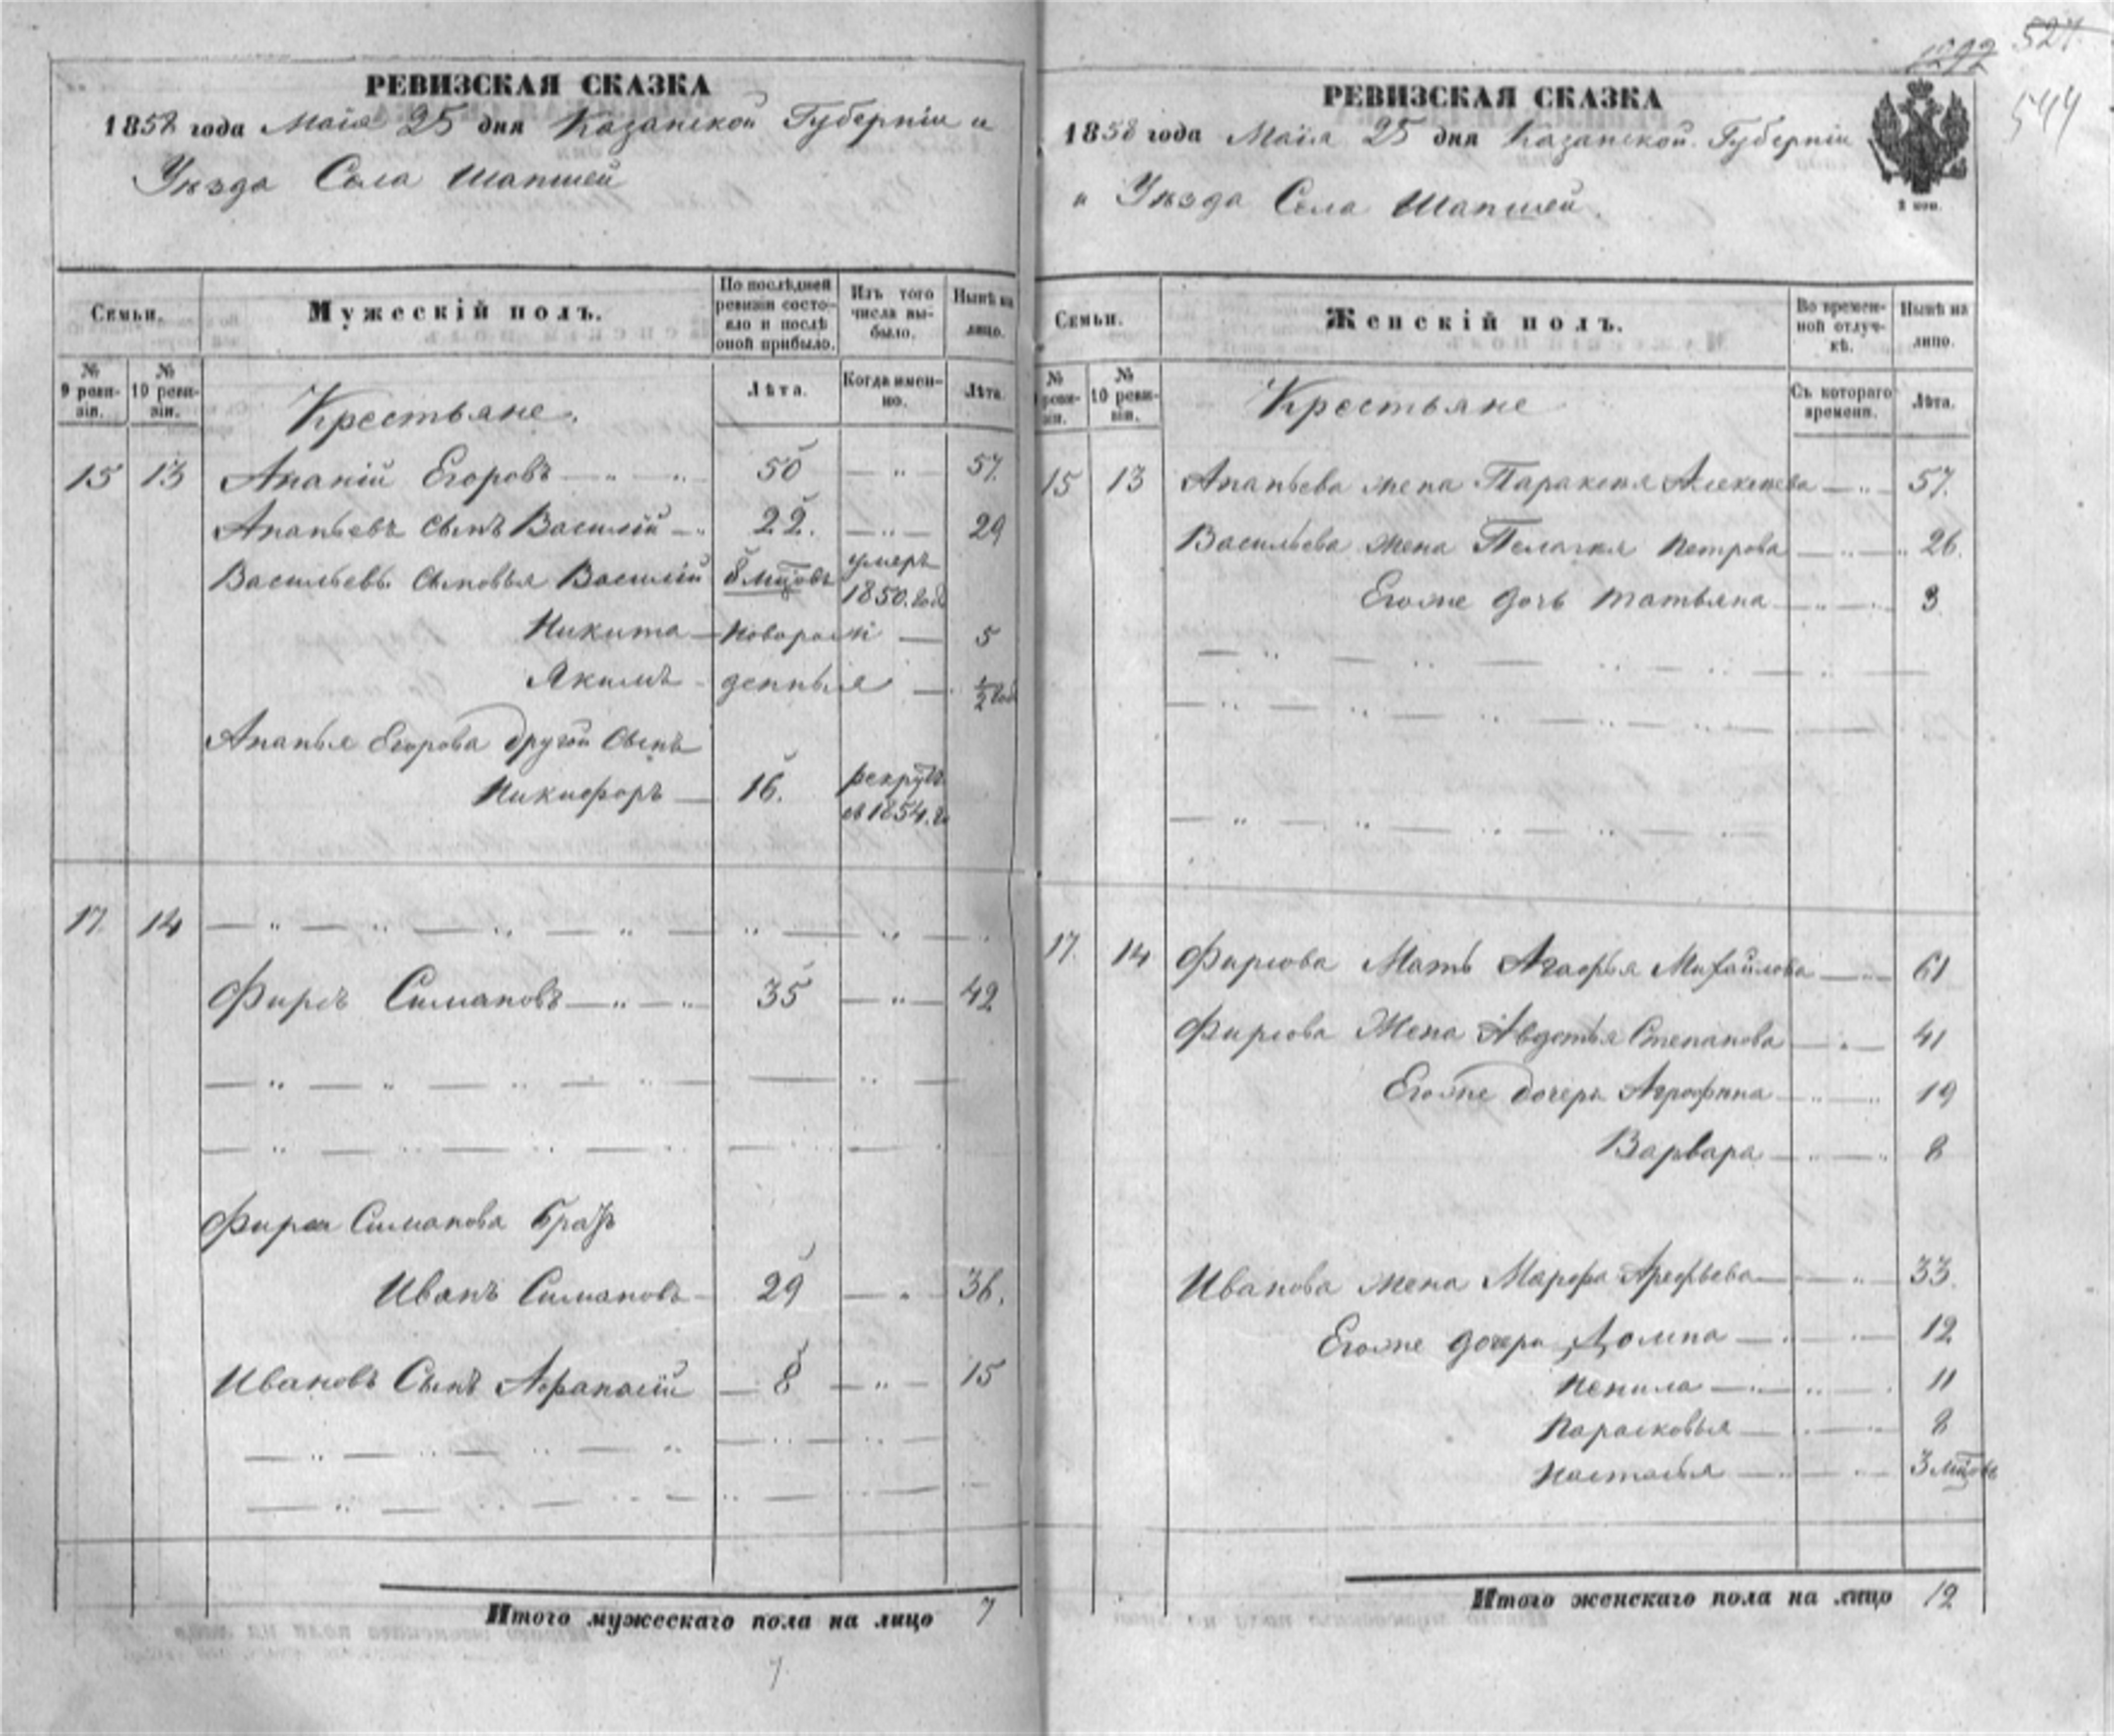 1292 527.
544
РЕВИЗСКАЯ СКАЗКА
1858 года Маія 25 дня Казанской Губерніи и
Уѣзда Села Шапшей
Семьи.
Мужескій полъ.
По послѣдней ревизіи состояло и послѣ оной прибыло.
Изъ того числа выбыло.
Нынѣ на лицо.
№ 9 ревизіи.
№ 10 ревизіи.
Крестьяне.
Лѣта.
Когда именно.
Лѣта.
15 13 Ананій Егоровъ — " — " 50 — " — 57.
Ананьевъ сынъ Василій — " 22. — " — 29
Васильевы сыновья Василій 8 мцовъ умеръ 1850. год
Никита — новорож — 5
Якимъ - денныя — 1/2 год
Ананья Егорова другой сынъ
Никифоръ — 16. рекрут. въ 1854. г.
17. 14 — " — " — " — " — " — " —
Фирсъ Симановъ — " — " 35 — " — 42
Фирса Симанова братъ
Иванъ Симановъ - 29 — " 36.
Ивановъ Сынъ Афанасій — 8 — " — 15
Итого мужескаго пола на лицо 7
7
РЕВИЗСКАЯ СКАЗКА
1858 года Маія 25 дня Казанской Губерніи
и Уѣзда Села Шапшей.
Семьи.
Женскій полъ.
Во временной отлучкѣ.
Нынѣ на лицо.
№ ревизіи.
№ 10 ревизіи.
Крестьяне
Съ котораго времени.
Лѣта.
15 13 Ананьева жена Параксея Алексѣева — " — 57.
Васильева жена Пелагея Петрова — " — " 26.
Егоже дочь Татьяна — " — " 3
17. 14 Фирсова Мать Агафья Михайлова — " — 61
Фирсова Жена Авдотья Степанова — " — 41
Егоже дочери Агрофина — " — " 19
Варвара — " — " 8
Иванова жена Марфа Арефьева — " — 33.
Егоже дочери Домна — " — " — 12
Ненила — " — " 11
Парасковья — " — " 8
Настасья — " — " 3 мцовъ
Итого женскаго пола на лицо 12